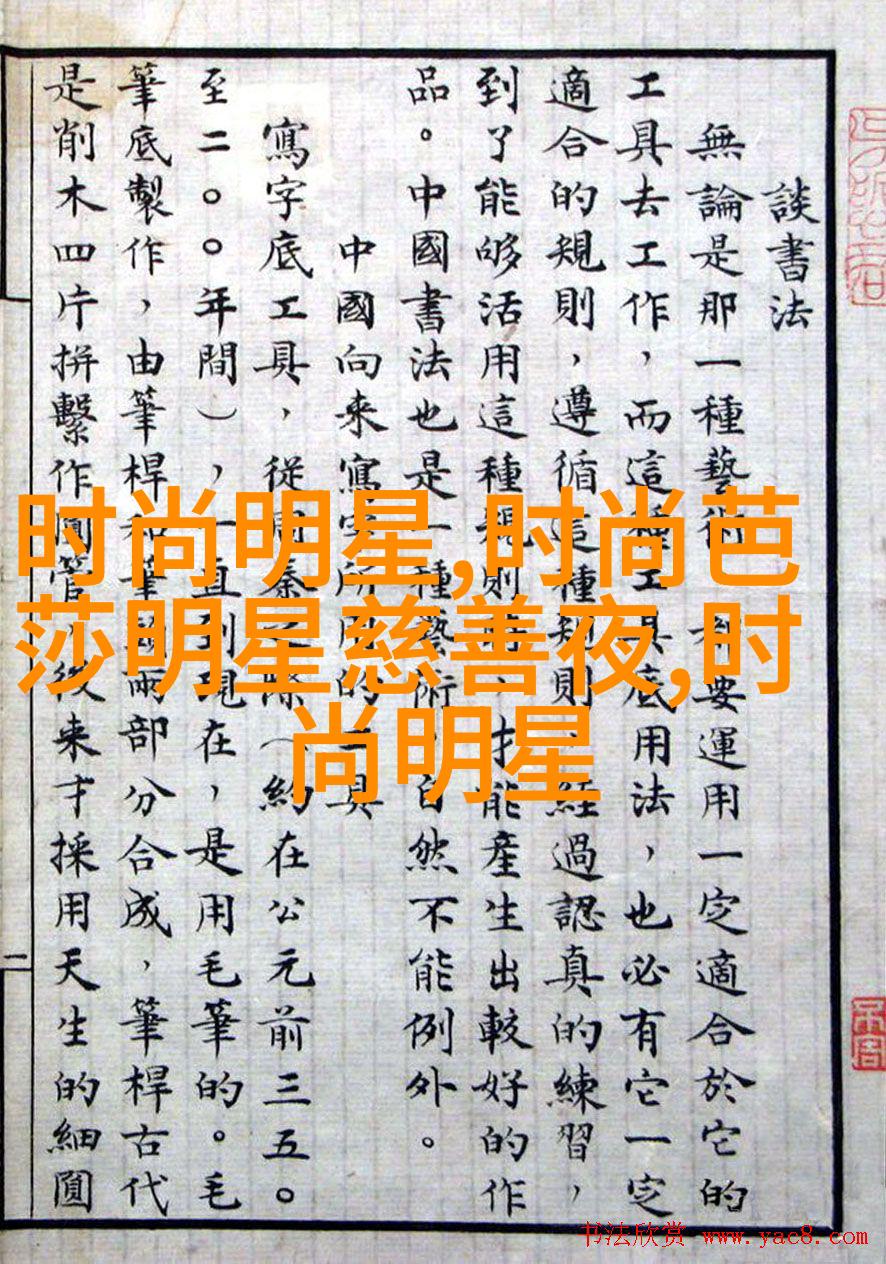 談書法
無論是那一種藝術 要運用一定適合於它的
工具去工作，而這種工具底用法，也必有它一定
適合的規則，遵循這種規則，經過認真的練習，
到了能够活用這種規則時，才能產生出較好的作
品。中國書法也是一種藝術，自然不能例外。
中國向来寫字所用的工具
寫字底工具，從周秦之際（約在公元前三五〇
至二〇〇年間），一直到現在，是用毛筆的。毛
筆底製作，由筆桿和筆頭兩部分合成，筆桿古代
是削木四片拼繫作圓管，後来才採用天生的細圓
二
时尚明星,时尚芭
莎明星慈善夜,时
尚明星
书法欣赏 www.yac8.com